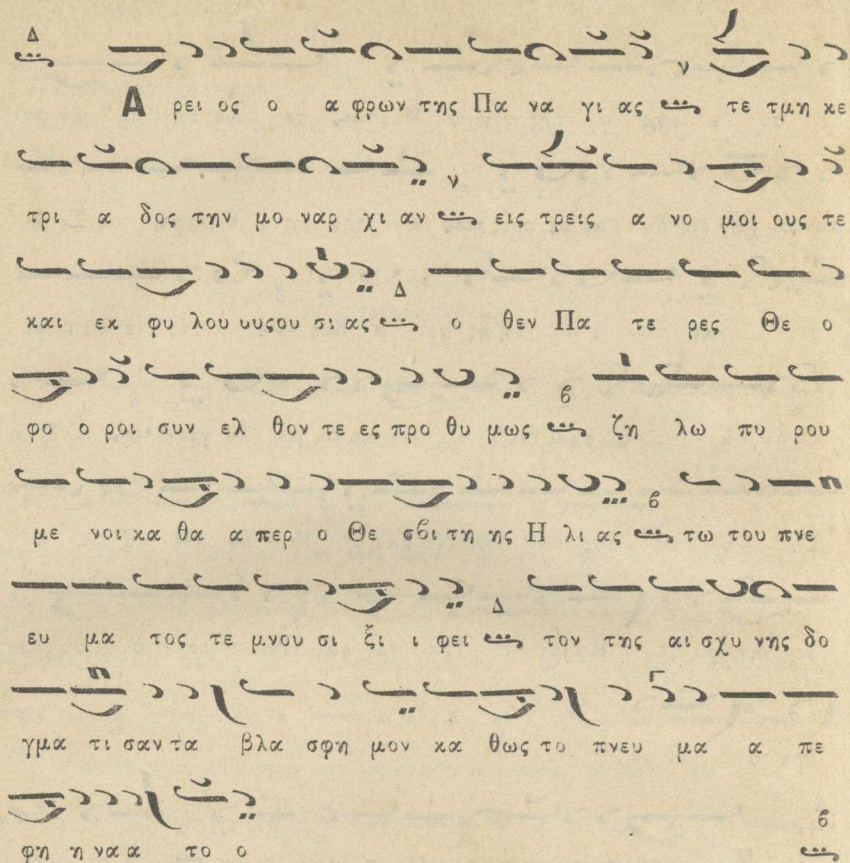 Α ρει ος ο α φρων της Πα να γι ας τε τμη κε
τρι α δος την μο ναρ χι αν εις τρεις α νο μοι ους τε
και εκ φυ λου υυςου σι ας ο θεν Πα τε ρες Θε ο
φο ο ροι συν ελ θον τε ες προ θυ μως ζη λω πυ ρου
με νοι κα θα α περ ο Θε σβι τη ης Η λι ας τω του πνε
ευ μα τος τε μνου σι ξι ι φει τον της αι σχυ νης δο
γμα τι σαν τα βλα σφη μον κα θως το πνευ μα α πε
φη η να α το ο